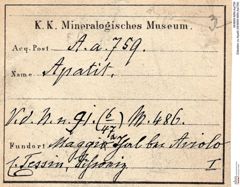 3
K. K. Mineralogisches Museum.
Acq. Post A. a. 759.
Name Apatit.
V. d. N. n. Gj. (6/47) M. 486.
Fundort Maggia Thal bei Airolo
C. Tessin, Schweiz I